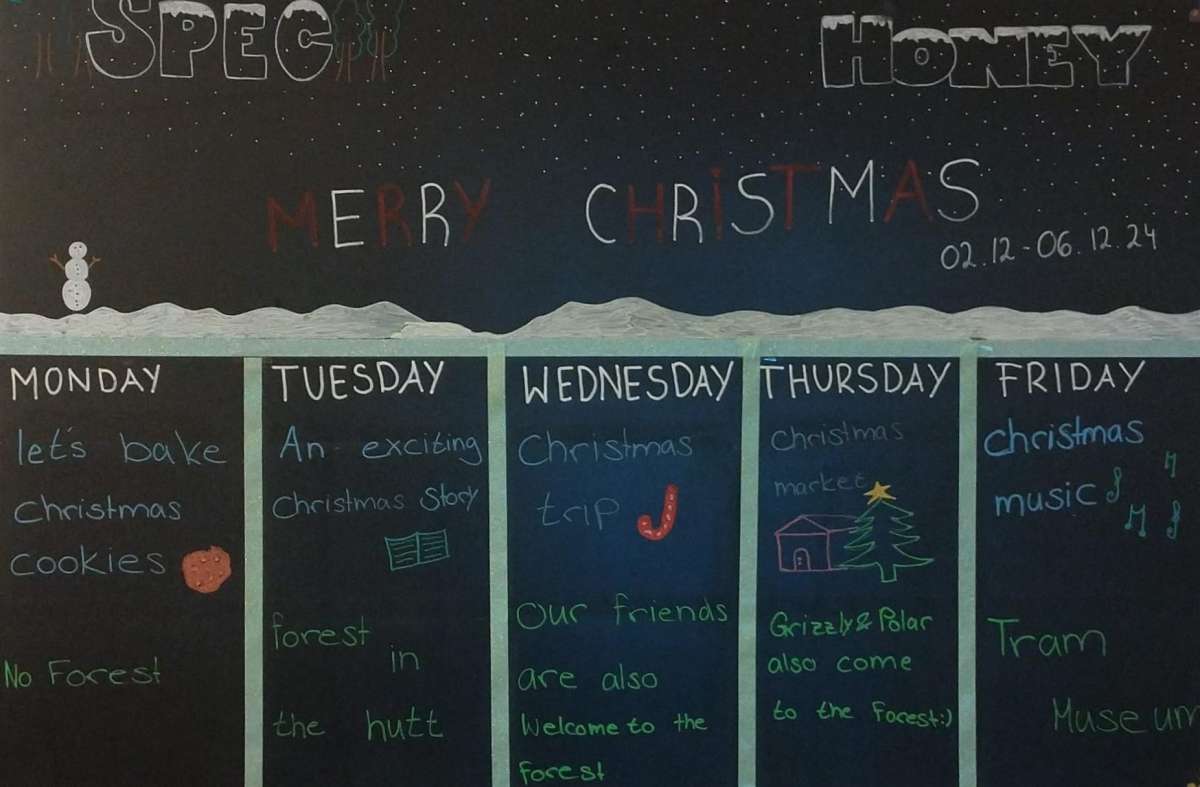 SPEC
HONEY
MERRY CHRiSTMAS
02.12-06.12.24
MONDAY
let's bake
Christmas
cookies
No Forest
TUESDAY
An exciting
Christmas Story
forest
in
the hutt
WEDNESDAY
Christmas
trip
Our friends
are also
Welcome to the
forest
THURSDAY
Christmas
market
Grizzly & Polar
also come
to the forest:)
FRIDAY
Christmas
music
Tram
Museum